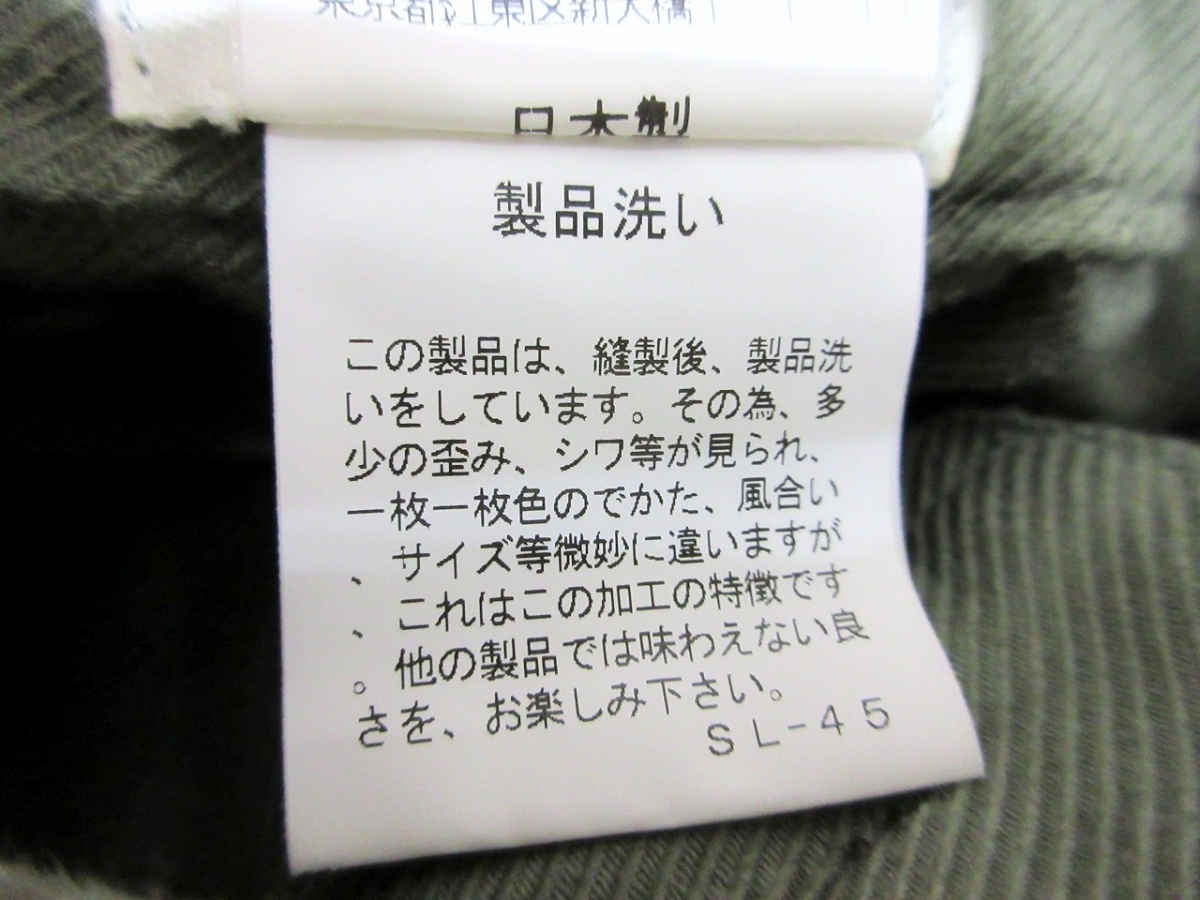 東京都江東区新大橋1
日本製
製品洗い
この製品は、縫製後、製品洗
いをしています。その為、多
少の歪み、シワ等が見られ、
一枚一枚色のでかた、風合い
、サイズ等微妙に違いますが
、これはこの加工の特徴です
。他の製品では味わえない良
さを、お楽しみ下さい。
SL-45